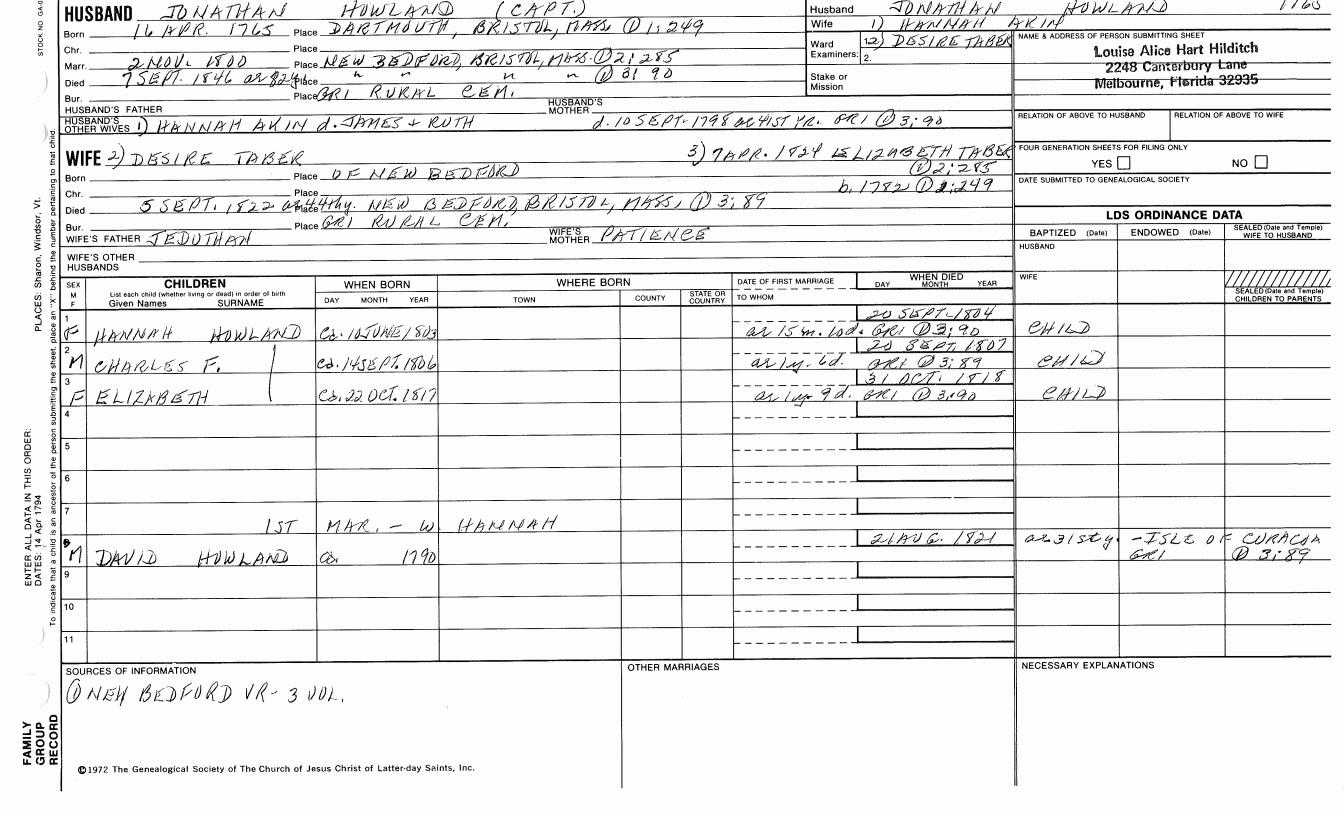 HUSBAND JONATHAN HOWLAND (CAPT.)
Born 16 APR. 1765 Place DARTMOUTH, BRISTOL, MASS ① 1:249
Chr. Place
Marr. 2 NOV. 1800 Place NEW BEDFORD, BRISTOL, MASS. ① 2:285
Died 7 SEPT. 1846 ae 82y Place " " " " ① 3:90
Bur. Place GRI RURAL CEM.
HUSBAND'S FATHER HUSBAND'S MOTHER
HUSBAND'S OTHER WIVES 1) HANNAH AKIN d. JAMES + RUTH d. 10 SEPT. 1798 ae 41st YR. GRI ① 3:90
WIFE 2) DESIRE TABER 3) 7 APR. 1824 ELIZABETH TABER
① 2:285
Born Place OF NEW BEDFORD
b. 1782 ① 2:249
Chr. Place
Died 5 SEPT. 1822 ae 44thy. Place NEW BEDFORD, BRISTOL, MASS, ① 3:89
Bur. Place GRI RURAL CEM.
WIFE'S FATHER JEDUTHAN WIFE'S MOTHER PATIENCE
WIFE'S OTHER HUSBANDS
Husband JONATHAN HOWLAND 1765
Wife 1) HANNAH AKIN
Ward Examiners: 1. 2) DESIRE TABER
2.
Stake or Mission
NAME & ADDRESS OF PERSON SUBMITTING SHEET
Louise Alice Hart Hilditch
2248 Canterbury Lane
Melbourne, Florida 32935
RELATION OF ABOVE TO HUSBAND RELATION OF ABOVE TO WIFE
FOUR GENERATION SHEETS FOR FILING ONLY
YES NO
DATE SUBMITTED TO GENEALOGICAL SOCIETY
LDS ORDINANCE DATA
BAPTIZED (Date) ENDOWED (Date) SEALED (Date and Temple) WIFE TO HUSBAND
HUSBAND
WIFE
SEALED (Date and Temple) CHILDREN TO PARENTS
SEX M F CHILDREN WHEN BORN WHERE BORN DATE OF FIRST MARRIAGE WHEN DIED
List each child (whether living or dead) in order of birth
Given Names SURNAME DAY MONTH YEAR TOWN COUNTY STATE OR COUNTRY TO WHOM DAY MONTH YEAR
1 20 SEPT. 1804
F HANNAH HOWLAND Ca. 10 JUNE 1803 ae 15 m. 10d. GRI ① 3:90 CHILD
2 20 SEPT. 1807
M CHARLES F. Ca. 14 SEPT. 1806 ae 1y. 6d. GRI ① 3:89 CHILD
3 31 OCT. 1818
F ELIZABETH Ca. 22 OCT. 1817 ae 1y 9d. GRI ① 3:90 CHILD
4
5
6
7
1ST MAR. - W HANNAH
8 21 AUG. 1821 ae 31sty. - ISLE OF CURACOA
M DAVID HOWLAND ca. 1790 GRI ① 3:89
9
10
11
SOURCES OF INFORMATION OTHER MARRIAGES NECESSARY EXPLANATIONS
① NEW BEDFORD VR - 3 VOL.
©1972 The Genealogical Society of The Church of Jesus Christ of Latter-day Saints, Inc.
FAMILY GROUP RECORD
ENTER ALL DATA IN THIS ORDER:
DATES: 14 Apr 1794
PLACES: Sharon, Windsor, Vt.
To indicate that a child is an ancestor of the person submitting the sheet, place an "X" behind the number pertaining to that child.
STOCK NO.